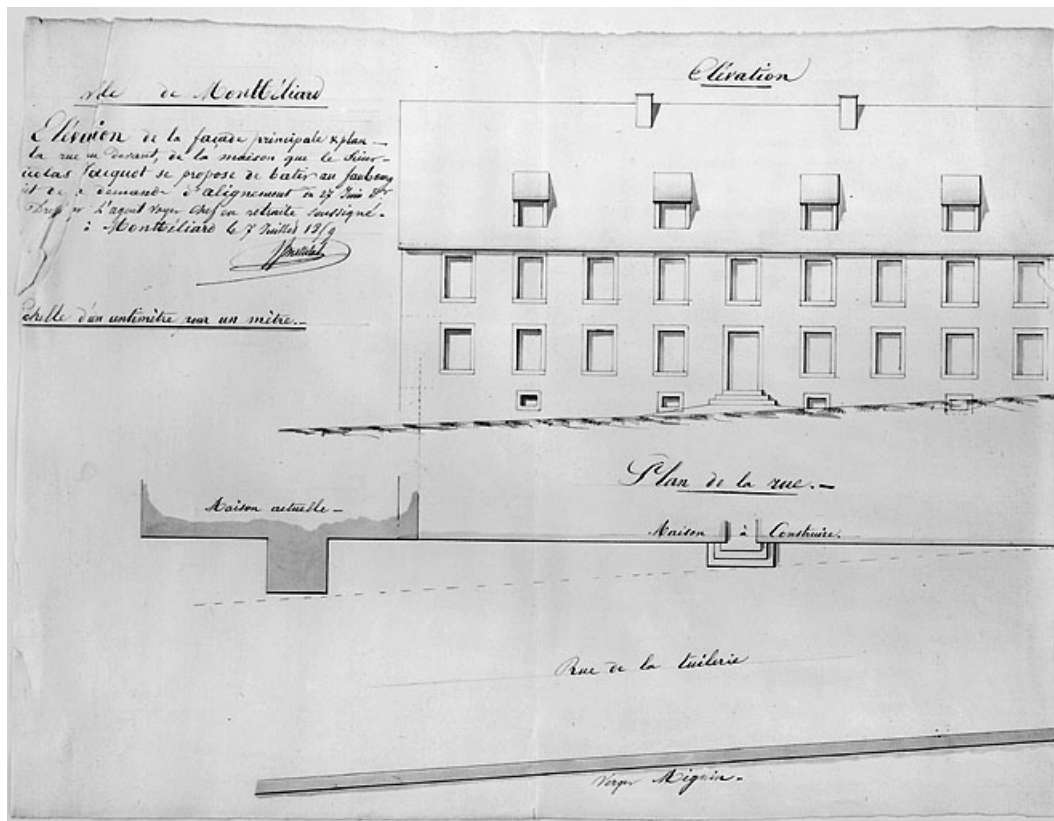 Ville de Montbéliard
Elévation de la façade principale & plan
la rue au devant, de la maison que le Sieur
Nicolas Jacquot se propose de batir au faubourg
et de demande d'alignement du 27 Juin
Dressé par l'agent voyer chef en retraite soussigné.
à Montbéliard le 7 Juillet
Echelle d'un centimètre pour un mètre.
Elévation
Plan de la rue.
Maison actuelle
Maison à Construire.
Rue de la tuilerie
Verger Mignin.